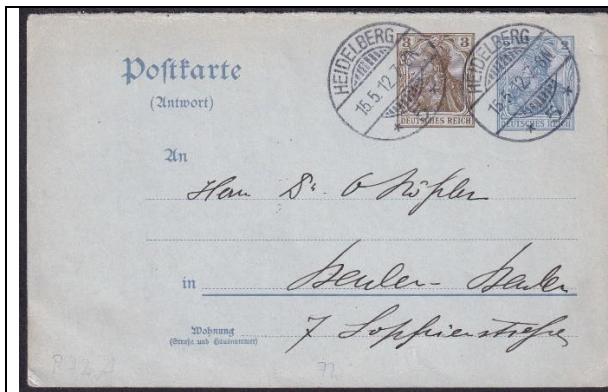 Postkarte
(Antwort)
HEIDELBERG
15.5.12.
3
DEUTSCHES REICH
HEIDELBERG
15.5.12.
2
DEUTSCHES REICH
An
Herrn Dr. O Köhler
in Baden-Baden
Wohnung
(Straße und Hausnummer)
7 Sophienstraße
72